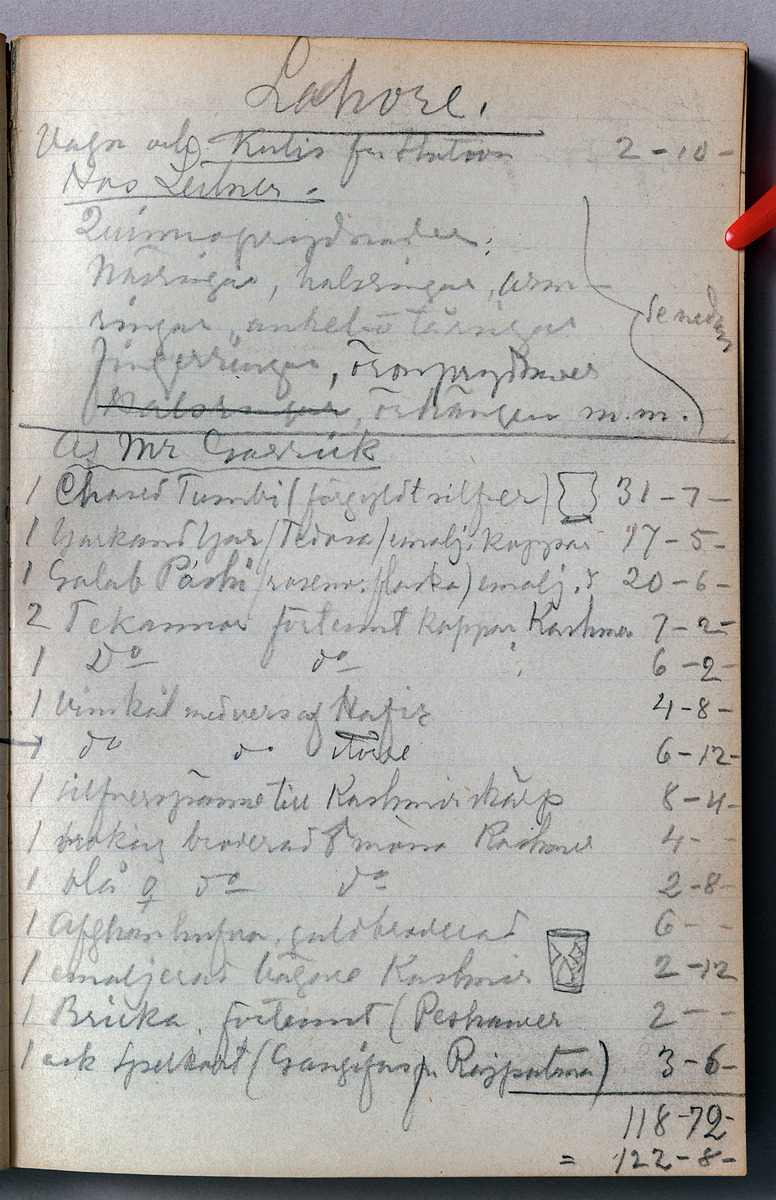 Lahore.
Vagn och Kulis fr. Station 2-10-
Hos Leitner.
Quinnoprydnader:
Näsringar, halsringar, arm-
ringar, ankel o tåringar
fingerringar, öronprydnader se nedan
Halsringar, örhängen m.m.
Af Mr Garrick
1 Chased Tumbi (förgyldt silfver) 31-7-
1 Yarkand Yar (Tedosa) emalj. koppar 17-5-
1 Golab Pashi (rosenv. flaska) emalj. 20-6-
2 Tekannor förtennt koppar Kashmir 7-2-
1 Do do 6-2-
1 Vinskål med vers af Hafiz 4-8-
1 do do större 6-12-
1 silfverspänne till Kashmirskärp 8-4-
1 broderad mössa Kashmir 4- -
1 blå do do 2-8-
1 Afghan hufva, guldbroderad 6- -
1 emaljerad bägare Kashmir 2-12
1 Bricka förtennt (Peshawer 2- -
1 ask Spelkort (Gangifas fr Rajputana) 3-6-
118-72-
= 122-8-